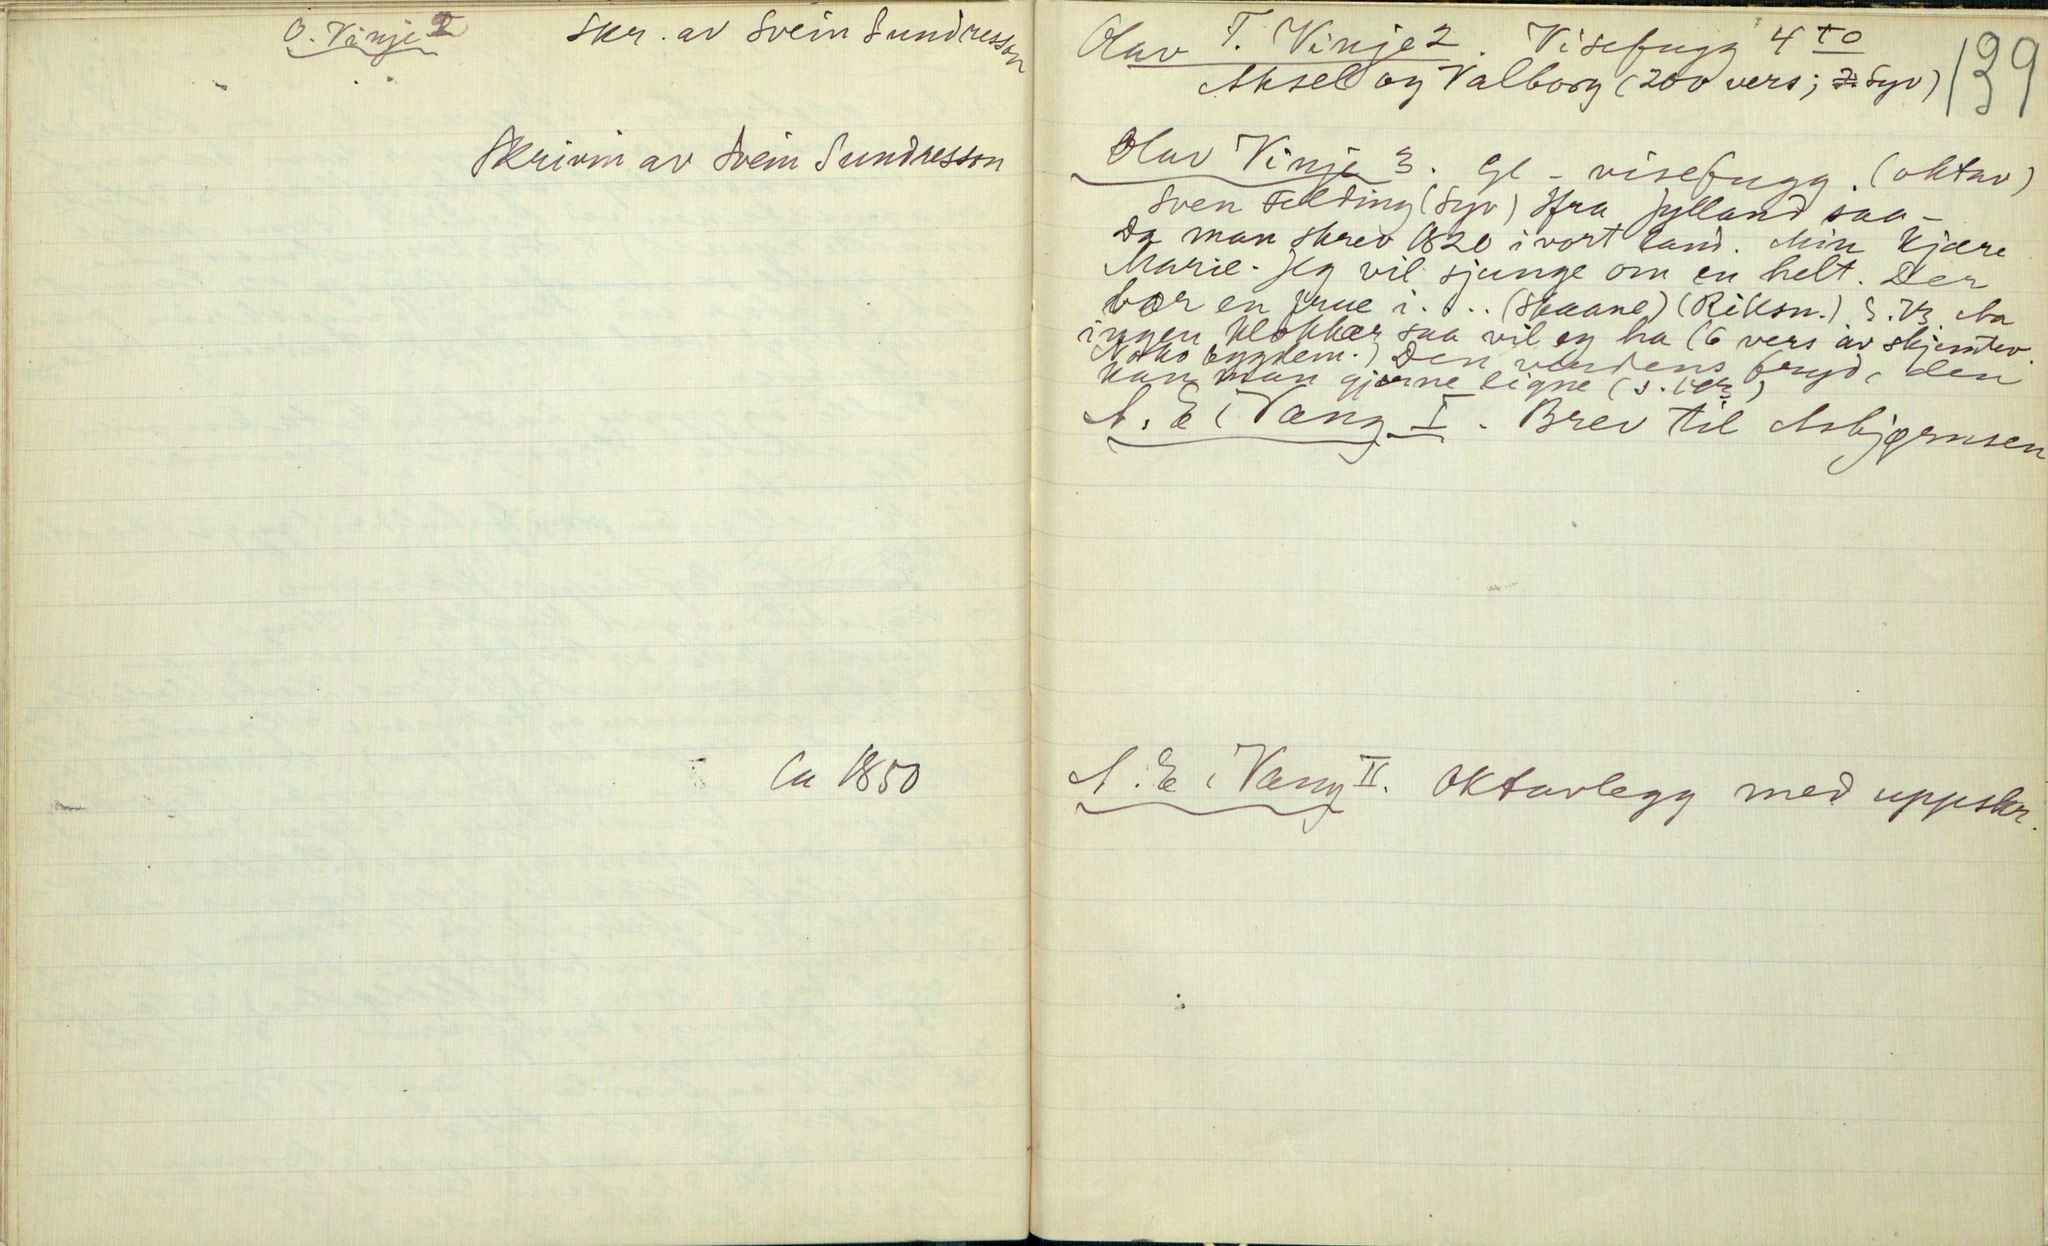 O. Vinje 2 Skr. av Svein Sundresson
Skrivin av Svein Sundresson
Ca 1850
139
Olav T. Vinje 2. Visefugg 4to
Aksel og Valborg (200 vers; Syv)
Olav Vinje 3. Gl - visefugg. (oktav)
Sven Felding (Syv) Ifra Jylland saa -
Da man skrev 1820 i vort land. Min Kjære
Marie. Jeg vil sjunge om en helt. Der
bor en frue i . . . (Skaane) (Riksm.)
ingen klokkar saa vil eg ha (6 vers av skjemtev.
Noko bygdem.) Den verdens fryd, den
kan man gjerne ligne
A. E. i Vang I. Brev til Asbjørnsen
A. E. i Vang II. Oktavlegg med uppskr.